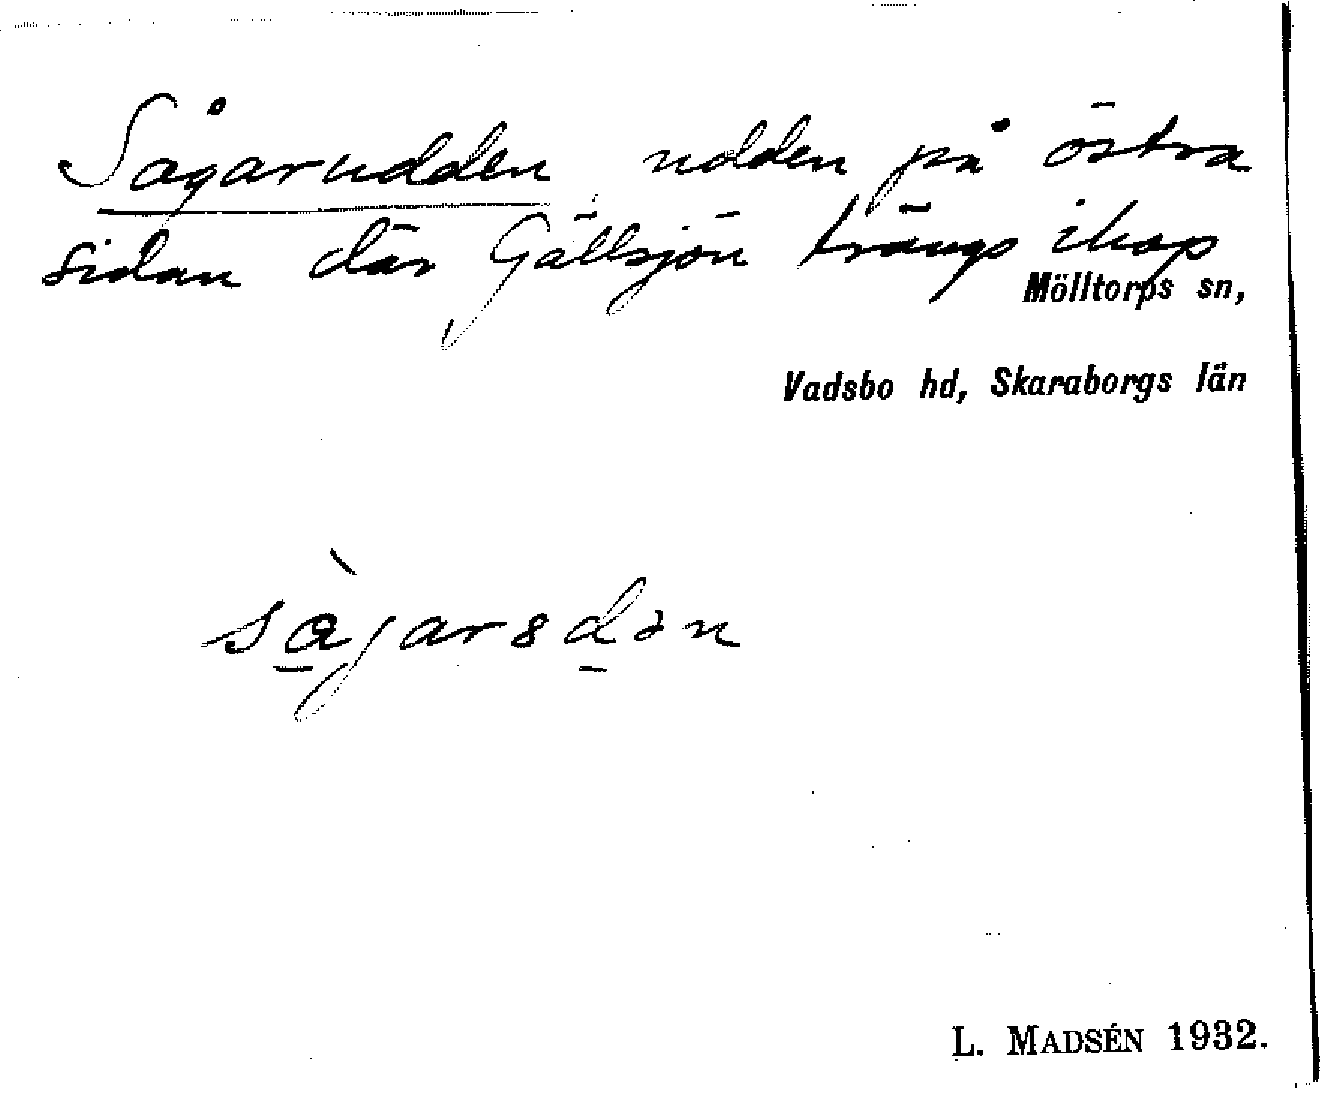 Sågarudden, udden på östra
sidan där Gällsjön trängs ihop
Mölltorps sn,
Vadsbo hd, Skaraborgs län
L. MADSÉN 1932.